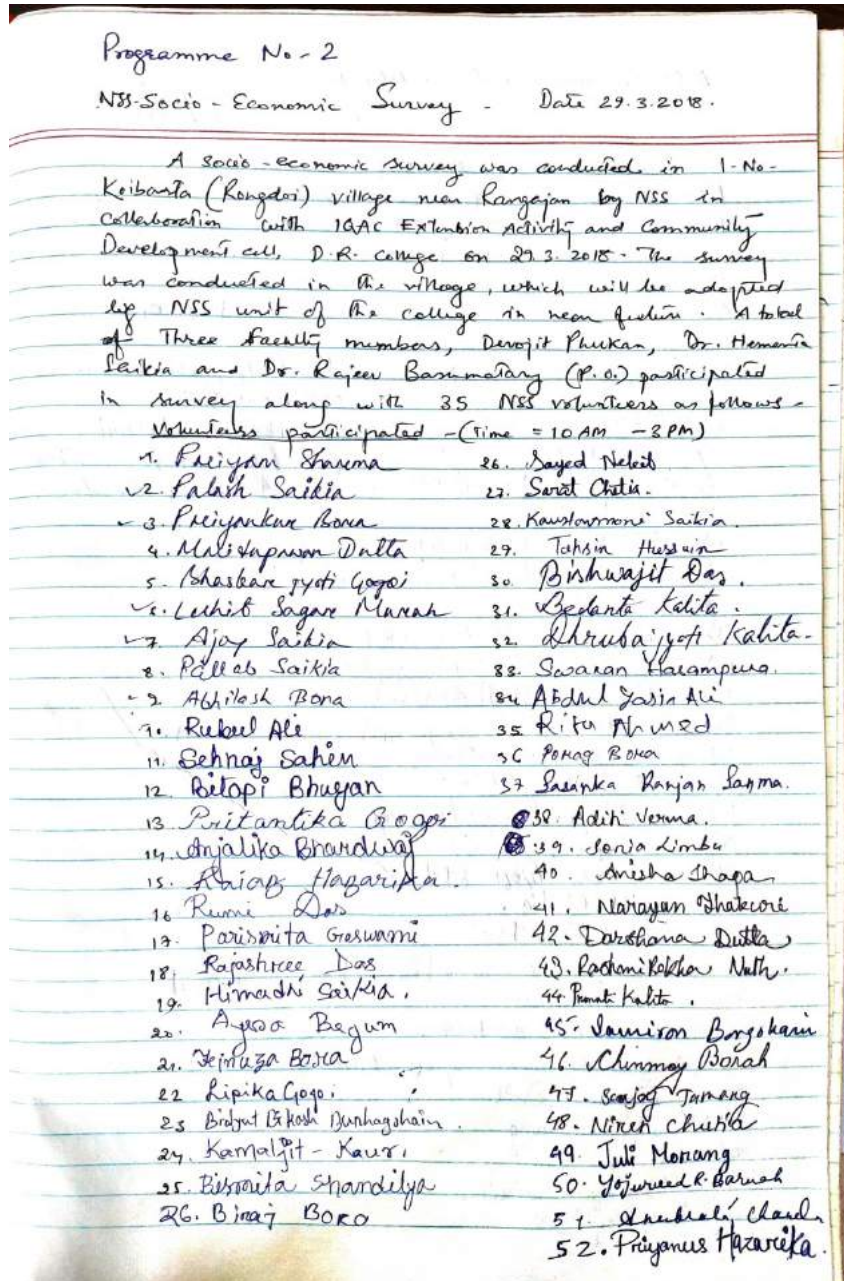 Programme No - 2
NSS-Socio - Economic Survey - Date 29.3.2018.
A socio-economic survey was conducted in 1-No-
Keibarta (Rongdoi) village near Rangajan by NSS in
collaboration with IQAC Extension Activity and Community
Development cell, D.R. College on 29.3.2018. The survey
was conducted in the village, which will be adopted
by NSS unit of the college in near future. A total
of Three faculty members, Devojit Phukan, Dr. Hemanta
Saikia and Dr. Rajeev Basumatary (P.O.) participated
in survey along with 35 NSS volunteers as follows -
Volunteers participated - (Time = 10 AM - 3 PM)
1. Priyam Sharma
2. Palash Saikia
3. Priyankur Bora
4. Dutta
5. Bhaskar Jyoti Gogoi
6. Luchit Sagar Murah
7. Ajoy Saikia
8. Pallab Saikia
9. Abhilash Bora
10. Rubul Ali
11. Sehnaj Sahin
12. Bitopi Bhuyan
13 Pritantika Gogoi
14. Anjalika Bhardwaj
15. Hazarika.
16 Rumi Das
17. Parismita Goswami
18. Rajashree Das
19. Himadri Saikia.
20. Begum
21. Bora
22 Lipika Gogoi
23 Bikash
24. Kamaljit - Kaur.
25. Bismita Shandilya
26. Biraj BORO
26. Sayed
27. Sarat Chetia.
28. Kaustavmoni Saikia.
29. Tahsin Hussain
30. Bishwajit Das.
31. Bedanta Kalita.
32. Dhrubajyoti Kalita.
33. Swaran
34 Abdul Yasin Ali
35 Ritu Ahmed
36 Porag Bora
37 Sasanka Ranjan Sarma.
38. Aditi Verma.
39. Sonia Limbu
40. Anisha Thapa
41. Narayan Thakuri
42. Darshana Dutta
43. Rashmi Rekha Nath.
44. Kalita.
45. Borgohain
46. Chinmoy Borah
47. Sanjog Tamang
48. Niren Chutia
49. Juli Morang
50. R. Baruah
51.
52. Priyanus Hazarika.